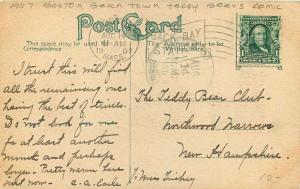 1907 BOSTON BEAN TOWN TEDDY BEARS COMIC
POST CARD
This space may be used for
Correspondence
The Address only to
be Written here
BACK BAY
-AM
1907
MASS.
I trust this will find
all the remaining ones
having the best of times.
Do not look for me
for at least another
month and perhaps
longer. Pretty warm here
just now. - C.A. Earle
The Teddy Bear Club-
Northwood Narrows
New Hampshire.
10-